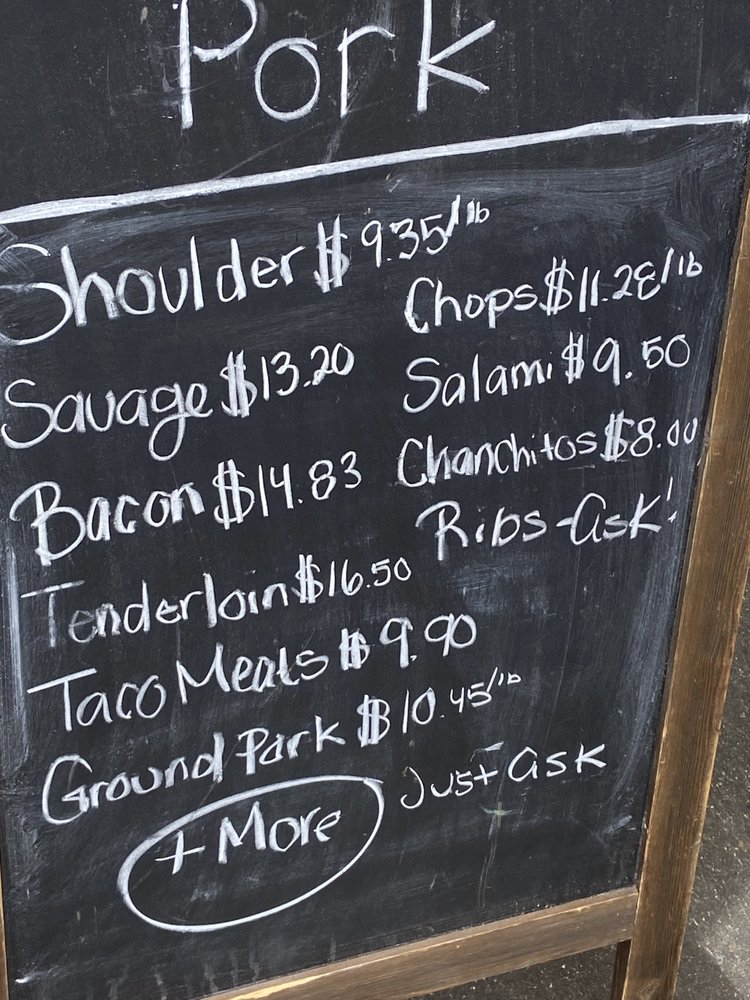 Pork
Shoulder $9.35/lb
Savage $13.20
Bacon $14.83
Tenderloin $16.50
Taco Meats $9.90
Ground Pork $10.45/lb
+ More
Chops $11.28/lb
Salami $9.50
Chanchitos $8.00
Ribs-Ask!
Just ask